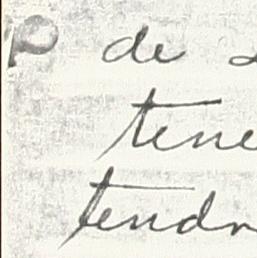 P de
tene
tendr